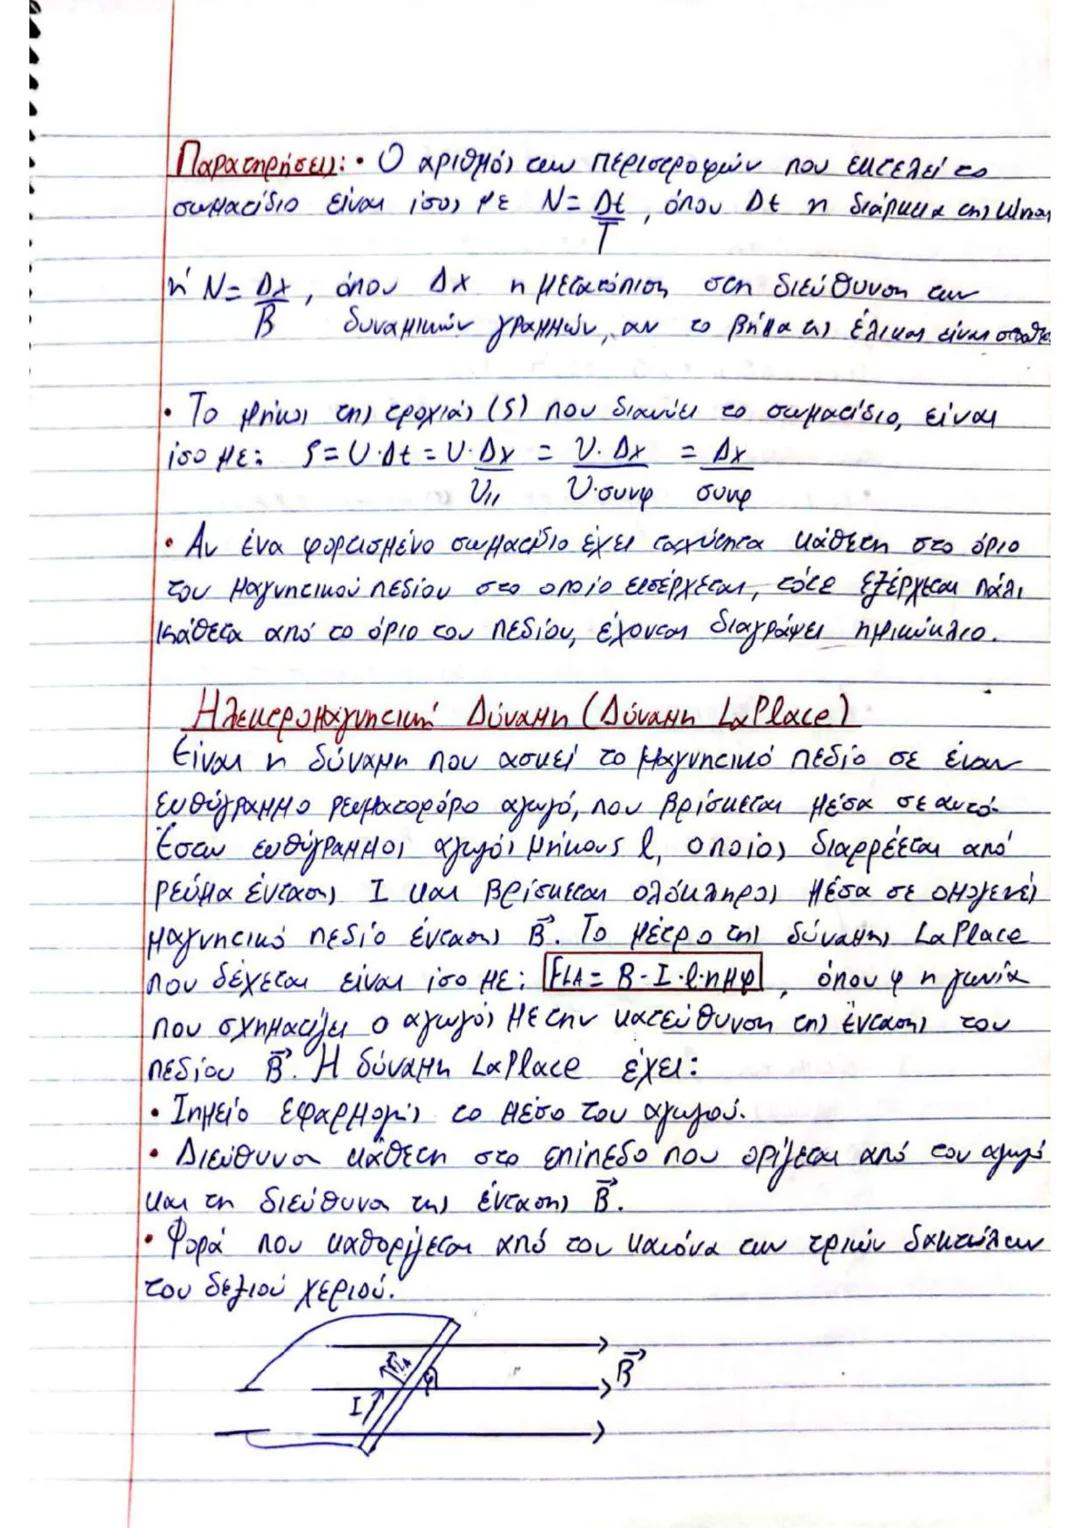 Παρατηρήσεις: • Ο αριθμός των περιστροφών που εκτελεί το
σωματίδιο είναι ίσος με N = Δt/T, όπου Δt η διάρκεια της κίνησ
ή N = Δx/β, όπου Δx η μετατόπιση στη διεύθυνση των
δυναμικών γραμμών, αν το βήμα της έλικας είναι σταθε
• Το μήκος της τροχιάς (S) που διανύει το σωματίδιο, είναι
ίσο με: S = υ·Δt = υ·Δx/υ// = υ·Δx/υ·συνφ = Δx/συνφ
• Αν ένα φορτισμένο σωματίδιο έχει ταχύτητα κάθετη στο όριο
του μαγνητικού πεδίου στο οποίο εισέρχεται, τότε εξέρχεται πάλι
κάθετα από το όριο του πεδίου, έχοντας διαγράψει ημικύκλιο.
Ηλεκτρομαγνητική Δύναμη (Δύναμη LaPlace)
Είναι η δύναμη που ασκεί το μαγνητικό πεδίο σε έναν
ευθύγραμμο ρευματοφόρο αγωγό, που βρίσκεται μέσα σε αυτό.
Έστω ευθύγραμμος αγωγός μήκους l, οποίος διαρρέεται από
ρεύμα έντασης I και βρίσκεται ολόκληρος μέσα σε ομογενές
μαγνητικό πεδίο έντασης B⃗. Το μέτρο της δύναμης LaPlace
που δέχεται είναι ίσο με: FLA = B·I·l·ημφ, όπου φ η γωνία
που σχηματίζει ο αγωγός με την κατεύθυνση της έντασης του
πεδίου B⃗. Η δύναμη LaPlace έχει:
• Σημείο εφαρμογής το μέσο του αγωγού.
• Διεύθυνση κάθετη στο επίπεδο που ορίζεται από τον αγωγό
και τη διεύθυνση της έντασης B⃗.
• Φορά που καθορίζεται από τον κανόνα των τριών δακτύλων
του δεξιού χεριού.
φ
B⃗
I